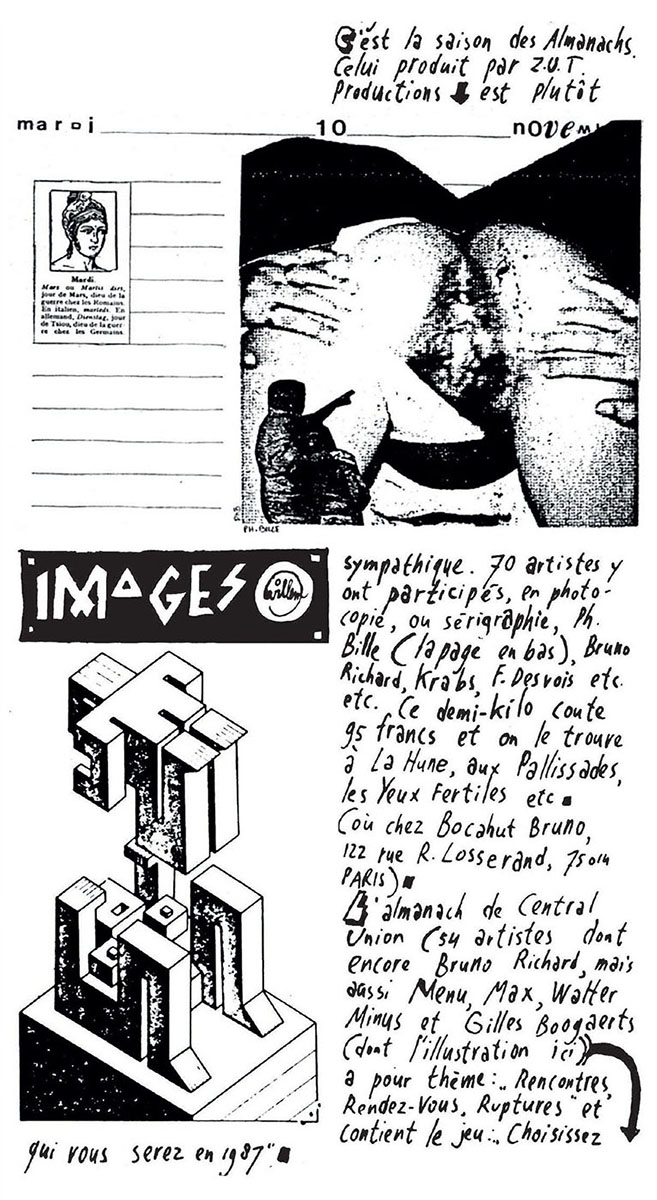 C'est la saison des Almanachs.
Celui produit par Z.U.T.
Productions est plutôt
mardi 10 novem
Mardi.
Mars ou Martis dies,
jour de Mars, dieu de la
guerre chez les Romains.
En italien, martedi. En
allemand, Dienstag, jour
de Tsiou, dieu de la guer-
re chez les Germains.
PH. BILLE
IMAGES
Willem
sympathique. 70 artistes y
ont participés, en photo-
copie, ou sérigraphie, Ph.
Bille (la page en bas), Bruno
Richard, Krabs, F. Desvois etc.
etc. Ce demi-kilo coute
95 francs et on le trouve
à La Hune, aux Pallissades,
les Yeux Fertiles etc
(où chez Bocahut Bruno,
122 rue R. Losserand, 75014
PARIS)
L'almanach de Central
Union (54 artistes dont
encore Bruno Richard, mais
aussi Menu, Max, Walter
Minus et Gilles Boogaerts
(dont l'illustration ici))
a pour thème: „Rencontres,
Rendez-Vous, Ruptures" et
contient le jeu: „Choisissez
qui vous serez en 1987"